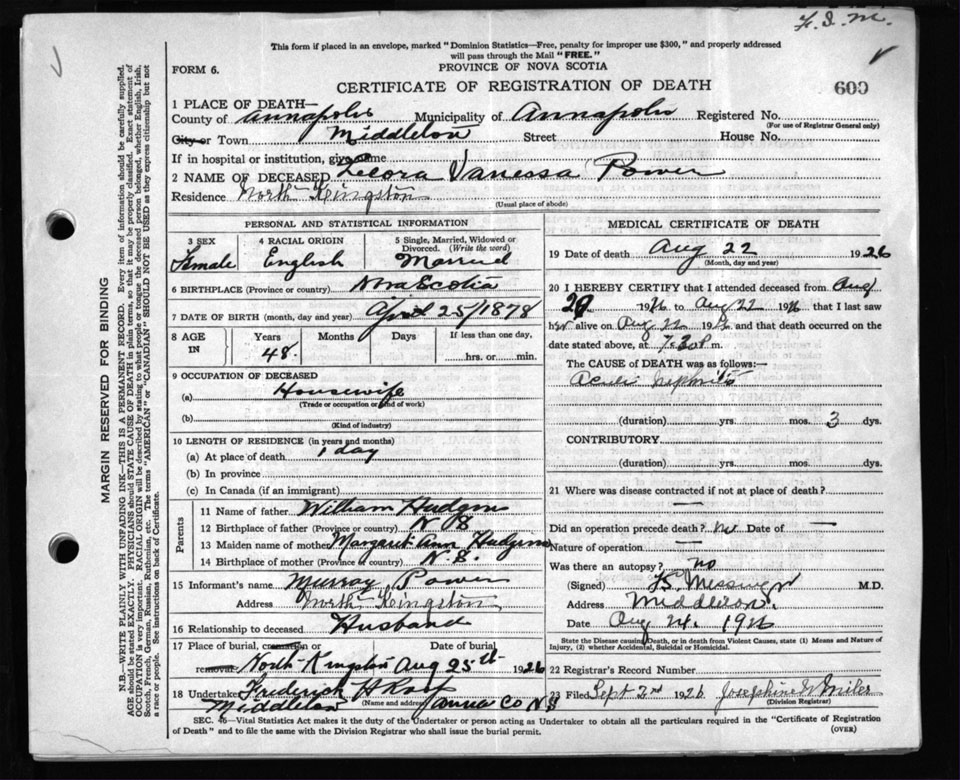 F. I. M.
This form if placed in an envelope, marked "Dominion Statistics—Free, penalty for improper use $300," and properly addressed
will pass through the Mail "FREE."
PROVINCE OF NOVA SCOTIA
FORM 6.
CERTIFICATE OF REGISTRATION OF DEATH
600
MARGIN RESERVED FOR BINDING
N.B.—WRITE PLAINLY WITH UNFADING INK—THIS IS A PERMANENT RECORD. Every item of information should be carefully supplied.
AGE should be stated EXACTLY. PHYSICIANS should STATE CAUSE OF DEATH in plain terms, so that it may be properly classified. Exact statement of
OCCUPATION is very important. RACIAL ORIGIN will be described by stating to what people or tongue the deceased person belonged, whether English, Irish,
Scotch, French, German, Russian, Ruthenian, etc. The terms "AMERICAN" or "CANADIAN" SHOULD NOT BE USED as they express citizenship but not
a race or people. See instructions on back of Certificate.
1 PLACE OF DEATH—
County of Annapolis Municipality of Annapolis Registered No.
(For use of Registrar General only)
City or Town Middleton Street House No.
If in hospital or institution, give name
2 NAME OF DECEASED Vanessa Power
Residence North Kingston
(Usual place of abode)
PERSONAL AND STATISTICAL INFORMATION
3 SEX Female
4 RACIAL ORIGIN English
5 Single, Married, Widowed or Divorced. (Write the word) Married
6 BIRTHPLACE (Province or country) Nova Scotia
7 DATE OF BIRTH (month, day and year) April 25/1878
8 AGE IN Years 48. Months Days If less than one day, hrs. or min.
9 OCCUPATION OF DECEASED
(a) Housewife
(Trade or occupation or kind of work)
(b)
(Kind of industry)
10 LENGTH OF RESIDENCE (in years and months)
(a) At place of death 1 day
(b) In province
(c) In Canada (if an immigrant)
Parents
11 Name of father William Hudgins
12 Birthplace of father (Province or country) N S
13 Maiden name of mother Margaret Ann Hudgins
14 Birthplace of mother (Province or country) N. S.
15 Informant's name Murray Power
Address North Kingston
16 Relationship to deceased Husband
17 Place of burial, cremation or removal Date of burial
North Kingston Aug 25th 1926
18 Undertaker Frederick H
Middleton (Name and address) Anna Co NS
MEDICAL CERTIFICATE OF DEATH
19 Date of death Aug 22 1926
(Month, day and year)
20 I HEREBY CERTIFY that I attended deceased from Aug
1926 to Aug 22 1926 that I last saw
her alive on Aug 22 1926 and that death occurred on the
date stated above, at 7.30 P m.
The CAUSE OF DEATH was as follows:—
Acute Nephritis
(duration) yrs. mos. 3 dys.
CONTRIBUTORY
(duration) yrs. mos. dys.
21 Where was disease contracted if not at place of death?
—
Did an operation precede death? no Date of —
Nature of operation —
Was there an autopsy? no
(Signed) Messinger M.D.
Address Middleton.
Date Aug 24. 1926
State the Disease causing Death, or in death from Violent Causes, state (1) Means and Nature of
Injury, (2) whether Accidental, Suicidal or Homicidal.
22 Registrar's Record Number
23 Filed Sept 2nd 1926 Josephine W Miles
(Division Registrar)
SEC. 46—Vital Statistics Act makes it the duty of the Undertaker or person acting as Undertaker to obtain all the particulars required in the "Certificate of Registration
of Death" and to file the same with the Division Registrar who shall issue the burial permit.
(OVER)